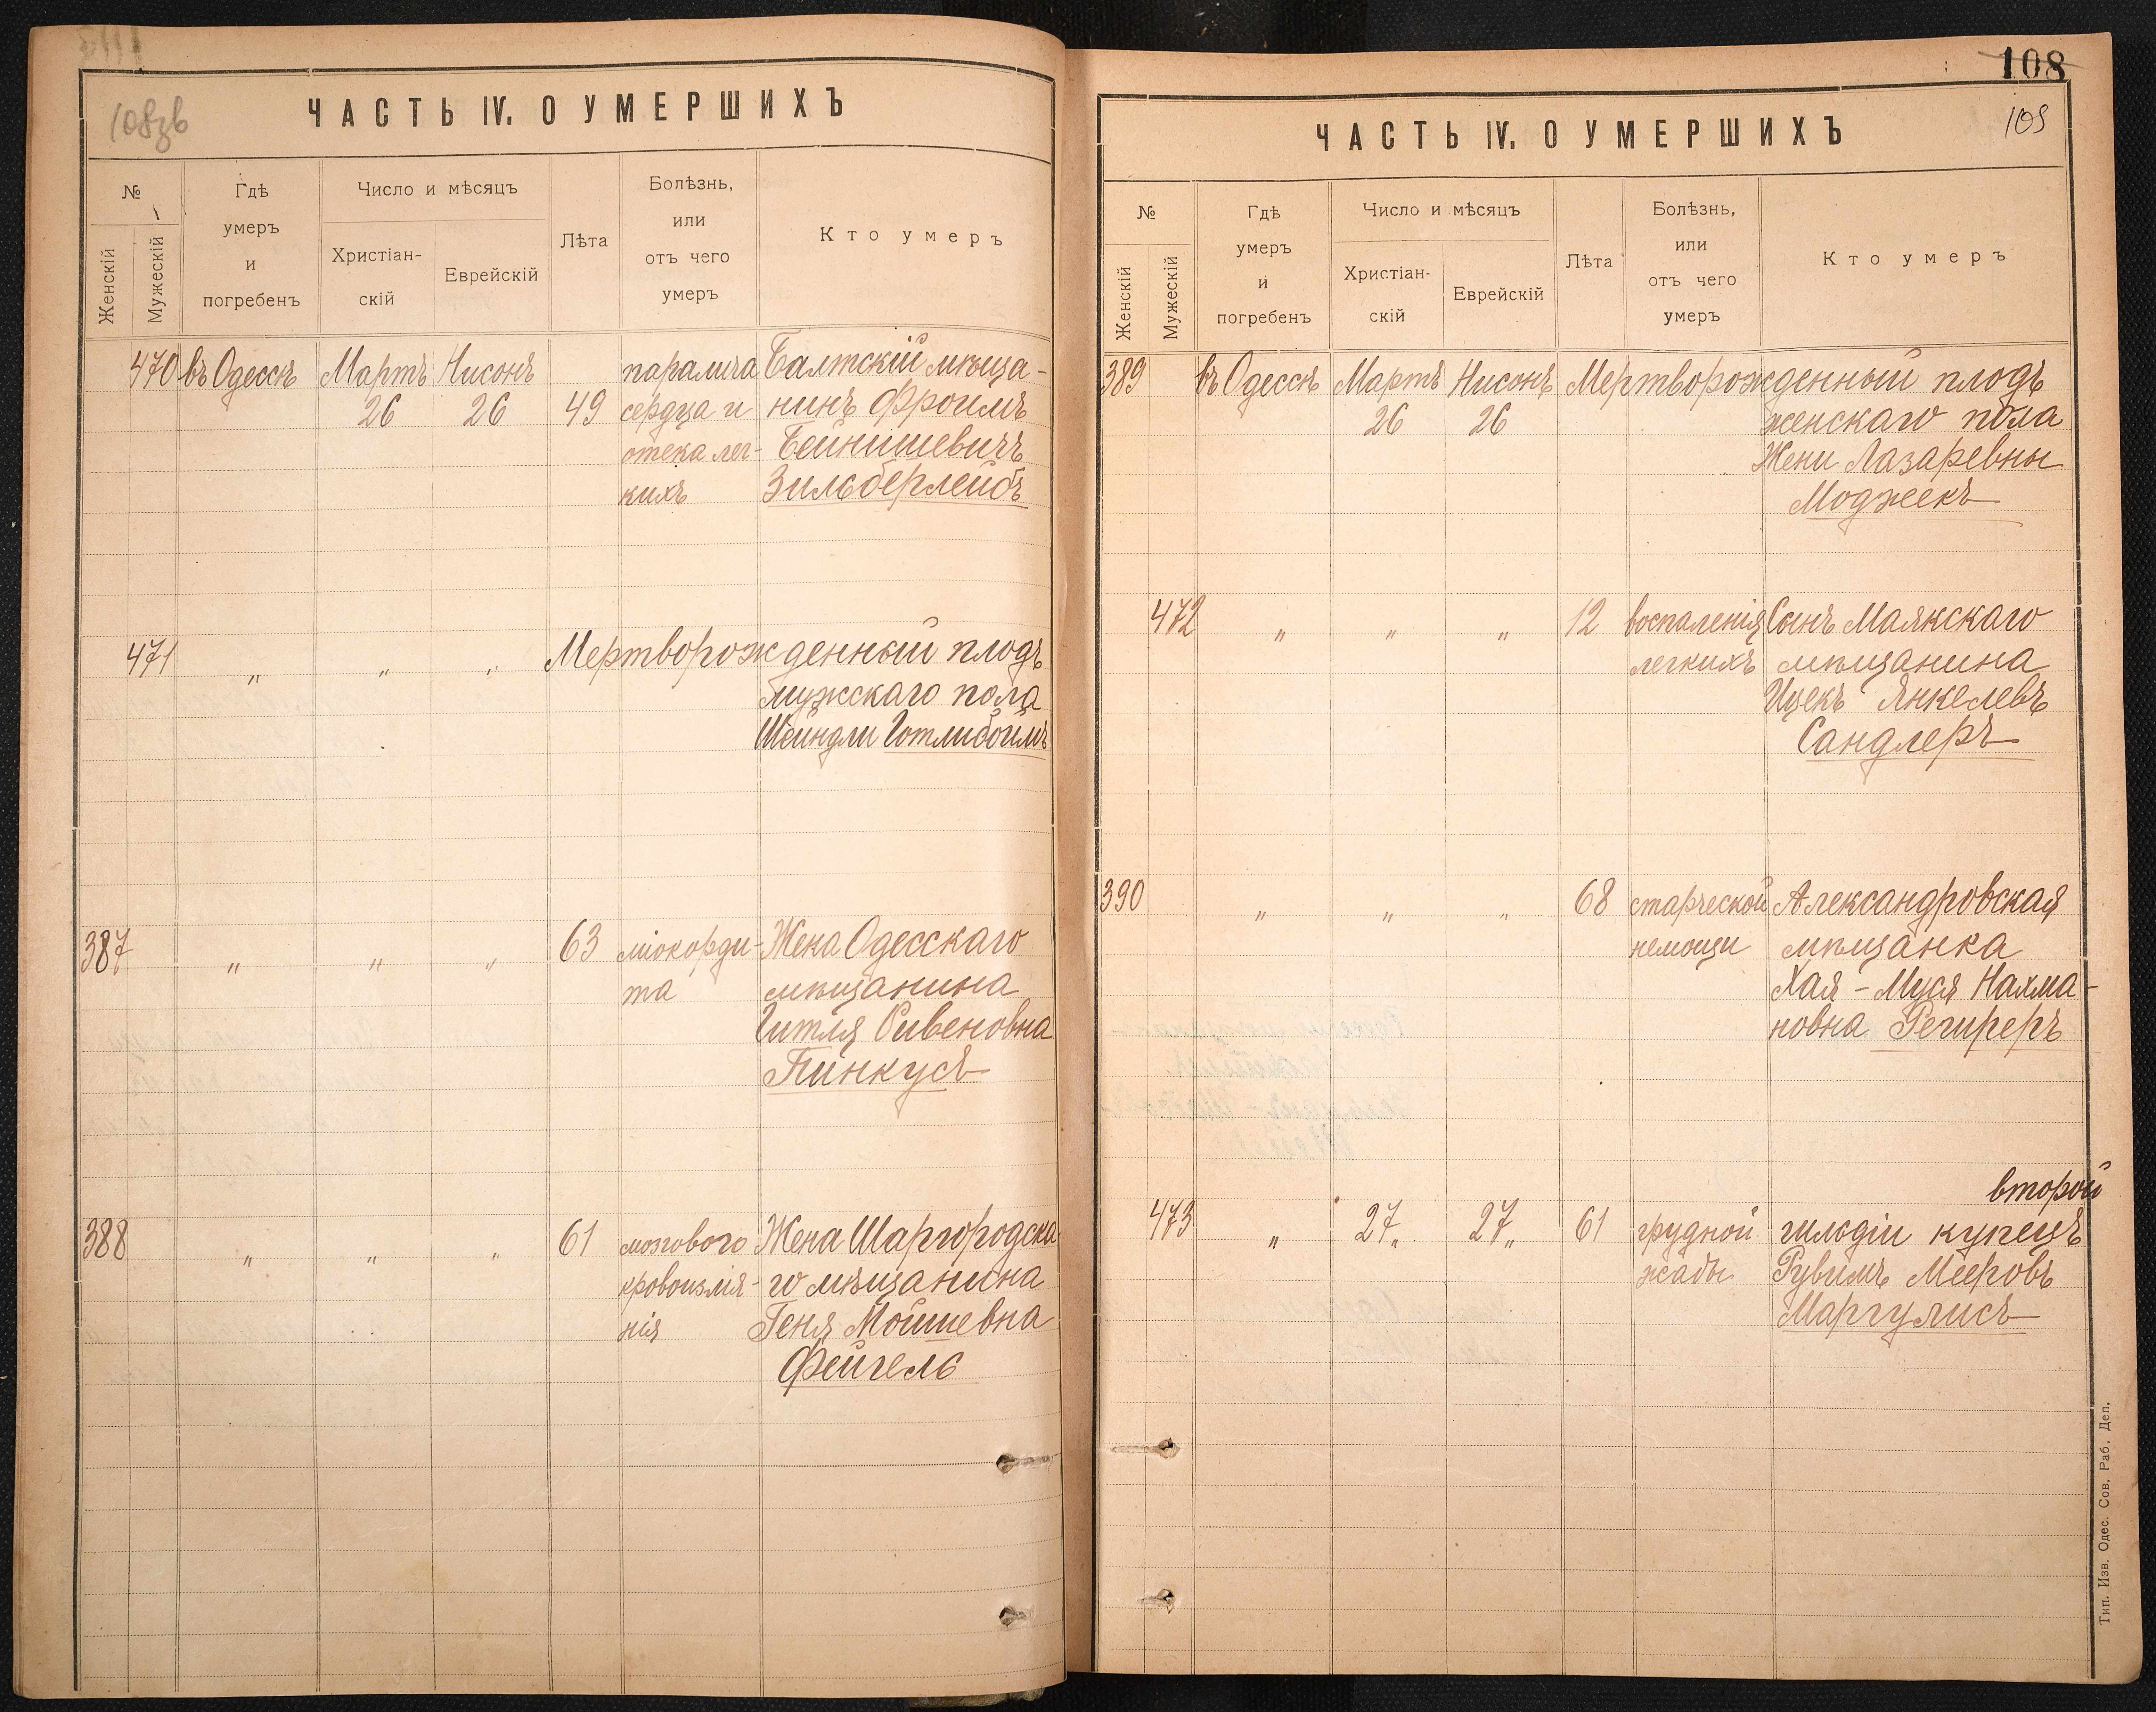 108зв
ЧАСТЬ IV. О УМЕРШИХЪ
№
Женскій
Мужескій
Гдѣ
умеръ
и
погребенъ
Число и мѣсяцъ
Христіан-
скій
Еврейскій
Лѣта
Болѣзнь,
или
отъ чего
умеръ
Кто умеръ
470 въ Одессѣ Мартъ Нисонъ паралича Балтскій мѣща-
26 26 49 сердца и нинъ Фроимъ
отека лег- Бейнишевичъ
кихъ Зильберлейбъ
471 " " " Мертворожденный плодъ
мужскаго пола
Шейндли Готлибоимъ
387 " " " 63 міокорди- Жена Одесскаго
та мѣщанина
Гитля Ривеновна
Пинкусъ
388 " " " 61 мозгового Жена Шаргородска
кровоизлія- го мѣщанина
нія Геня Мошшевна
Фейгель
108
109
ЧАСТЬ IV. О УМЕРШИХЪ
№
Женскій
Мужескій
Гдѣ
умеръ
и
погребенъ
Число и мѣсяцъ
Христіан-
скій
Еврейскій
Лѣта
Болѣзнь,
или
отъ чего
умеръ
Кто умеръ
389 въ Одессѣ Мартъ Нисонъ Мертворожденный плодъ
26 26 женскаго пола
Жени Лазаревны
Моджекъ
472 " " " 12 воспаленія Сынъ Маякскаго
легкихъ мѣщанина
Ицекъ Янкелевъ
Сандлеръ
390 " " " 68 старческой Александровская
немощи мѣщанка
Хая-Муся Нахма-
новна Региреръ
второй
473 " 27" 27" 61 грудной гильдіи купецъ
жабы Рувимъ Мееровъ
Маргулисъ
Тип. Изв. Одес. Сов. Раб. Деп.